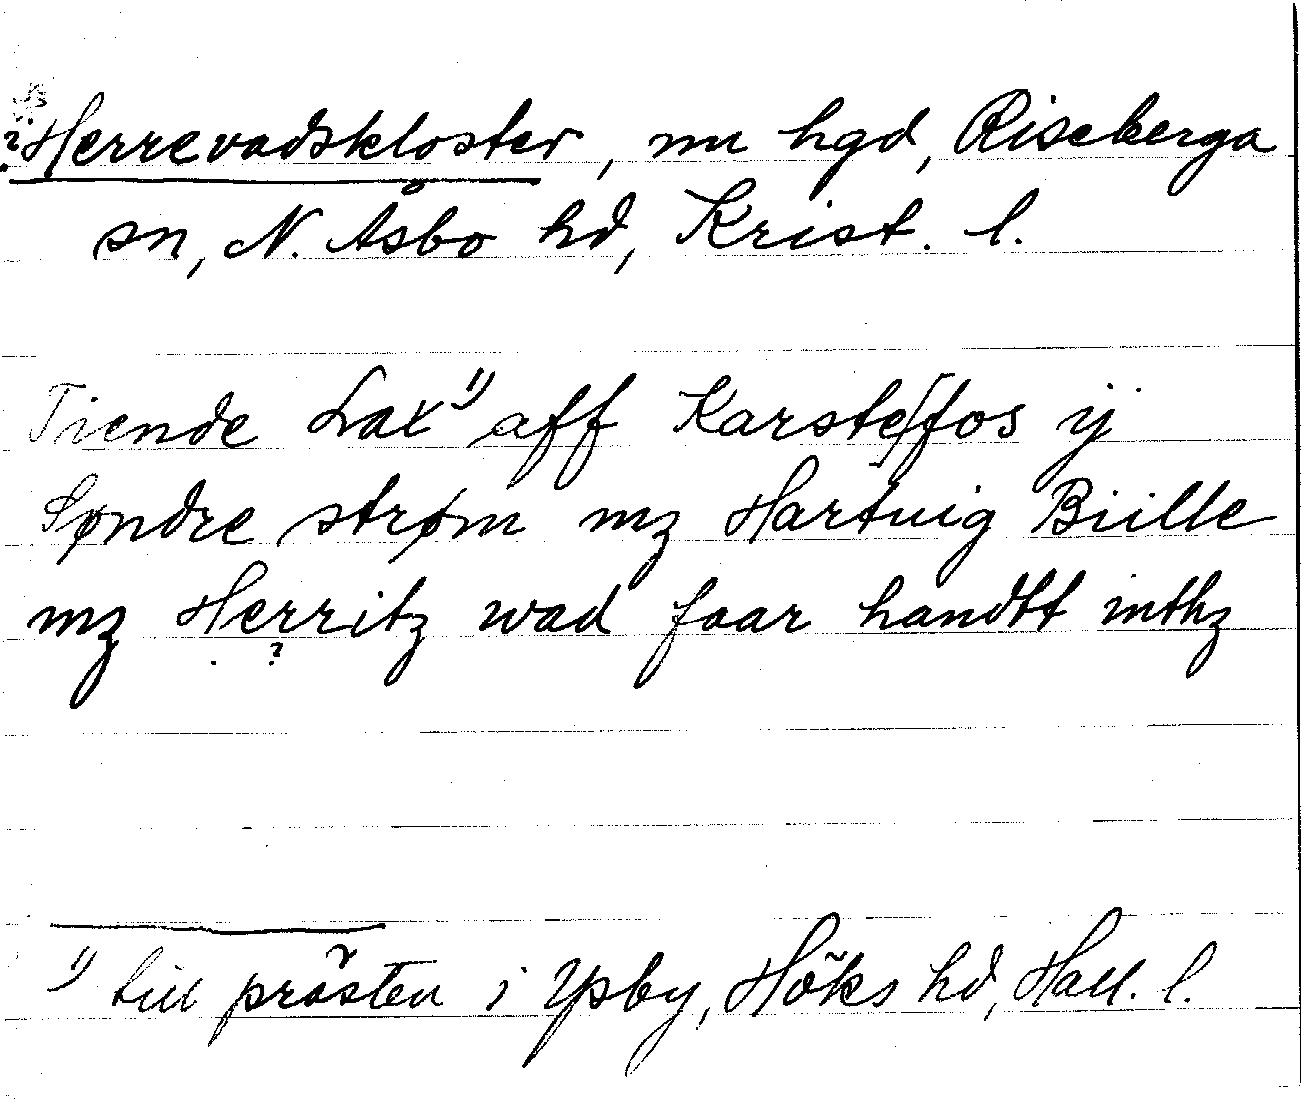 ?Herrevadskloster, nu hgd, Riseberga
sn, N. Åsbo hd, Krist. l.
Tiende Lax ¹⁾ aff Karste/fos ij
Søndre strøm mz Hartuig Biille
mz Herritz wad faar handtt inthz
?
¹⁾ till prästen i Ysby, Höks hd, Hall. l.